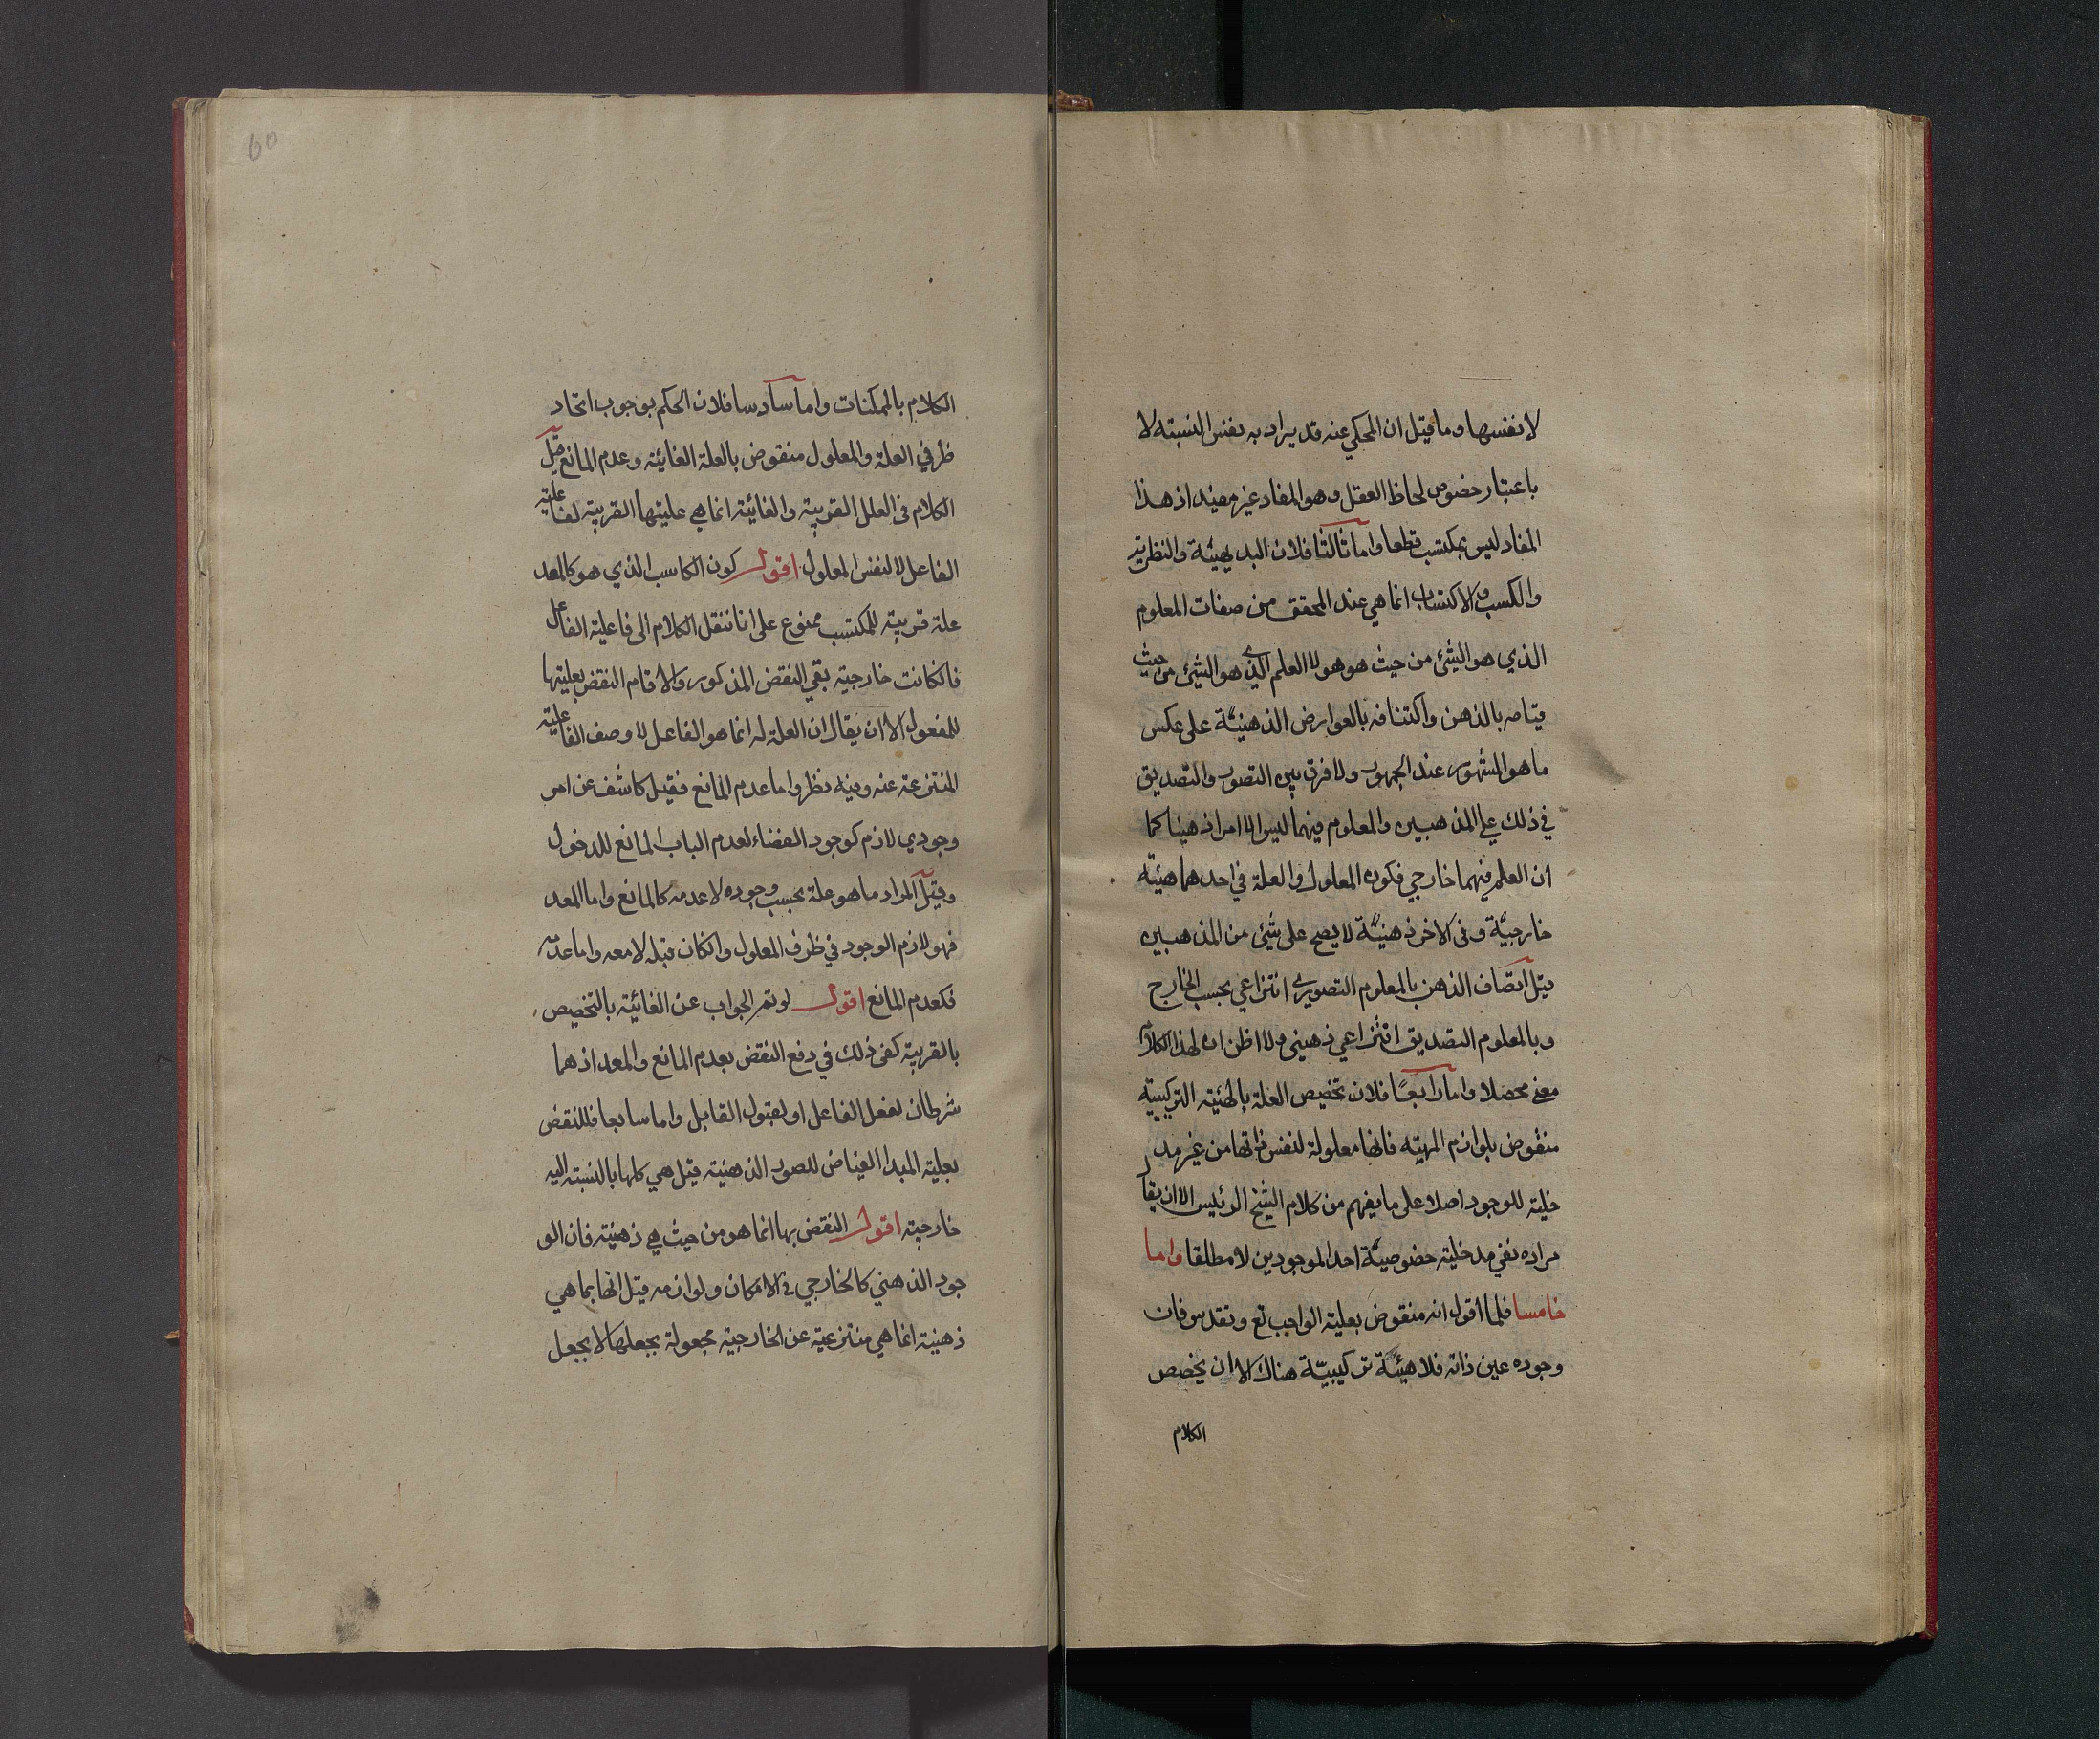 لا نفسها وما قيل ان المحكي عنه قد يراد به نفس النسبته لا
باعتبار خصوص لحاظ العقل وهو المفاد غير مفيد اذ هذا
المفاد ليس بمكتسب قطعا واما ثالثا فلان البديهيّة والنظريّة
والكسب والاكتساب انما هي عند المحقق من صفات المعلوم
الذي هو الشئ من حيث هو هو لا العلم الذي هو الشئ من حيث
قيامه بالذهن واكتنافه بالعوارض الذهنيّة على عكس
ما هو المشهور عند الجمهور ولا فرق بين التصور والتصديق
في ذلك على المذهبين والمعلوم فيهما ليس الا امرا ذهنيا كما
ان العلم فيهما خارجي فكون المعلول والعلة في احدهما هيئة
خارجيّة وفى الاخر ذهنيّة لا يصح على شئ من المذهبين
قيل اتصاف الذهن بالمعلوم التصوري انتزاعي بحسب الخارج
وبالمعلوم التصديق انتزاعي ذهني ولا اظن ان لهذا الكلام
معنى محصلا واما رابعًا فلان تخصيص العلة بالهئية التركيبية
منقوض بلوازم المهيّه فانها معلولة لنفس ذاتها من غير مد
خلية للوجود اصلا على ما يفهم من كلام الشيخ الرئيس الا ان يقال
مراده نفي مدخلية خصوصيّة احد الموجودين لا مطلقا واما
خامسا فلما اقول انه منقوض بعلية الواجب تع وتقدس فان
وجوده عين ذاته فلا هيئة تركيبيّة هناك الا ان يخصص
الكلام
60
الكلام بالممكنات واما سادسا فلان الحكم بوجوب اتحاد
ظرفي العلة والمعلول منقوض بالعلة الغائية وعدم المانع قيل
الكلام فى العلل القريبة والغائية انما هي عليتها القريبة لفاعلية
الفاعل لا لنفس المعلول اقول كون الكاسب الذي هو كالمعد
علة قريبة للمكتسب ممنوع على انا ننقل الكلام الى فاعلية الفاعل
فانكانت خارجية بقي النقض المذكور والا قام النقض بعليتها
للمفعول الا ان يقال ان العلة له انما هو الفاعل لا وصف الفاعلية
المنتزعة عنه وفيه نظر واما عدم المانع فقيل كاشف عن امر
وجودي لازم كوجود الفضاء لعدم الباب المانع للدخول
وقيل المراد ما هو علة بحسب وجوده لا عدمه كالمانع واما المعد
فهو لازم الوجود في ظرف المعلول وانكان قبله لا معه واما عدمه
فكعدم المانع اقول لو تم الجواب عن الغائية بالتخصيص
بالقريبة كفى ذلك في دفع النقض بعدم المانع والمعد اذ هما
شرطان لفعل الفاعل او لقبول القابل واما سابعا فللنقض
بعلية المبدا الفياض للصور الذهنية قيل هي كلها بالنسبة اليه
خارجية اقول النقض بها انما هو من حيث هي ذهنية فان الو
جود الذهني كالخارجي في الامكان ولوازمه قيل انها بما هي
ذهنية انما هي منتزعة عن الخارجية مجعولة بجعلها لا بجعل